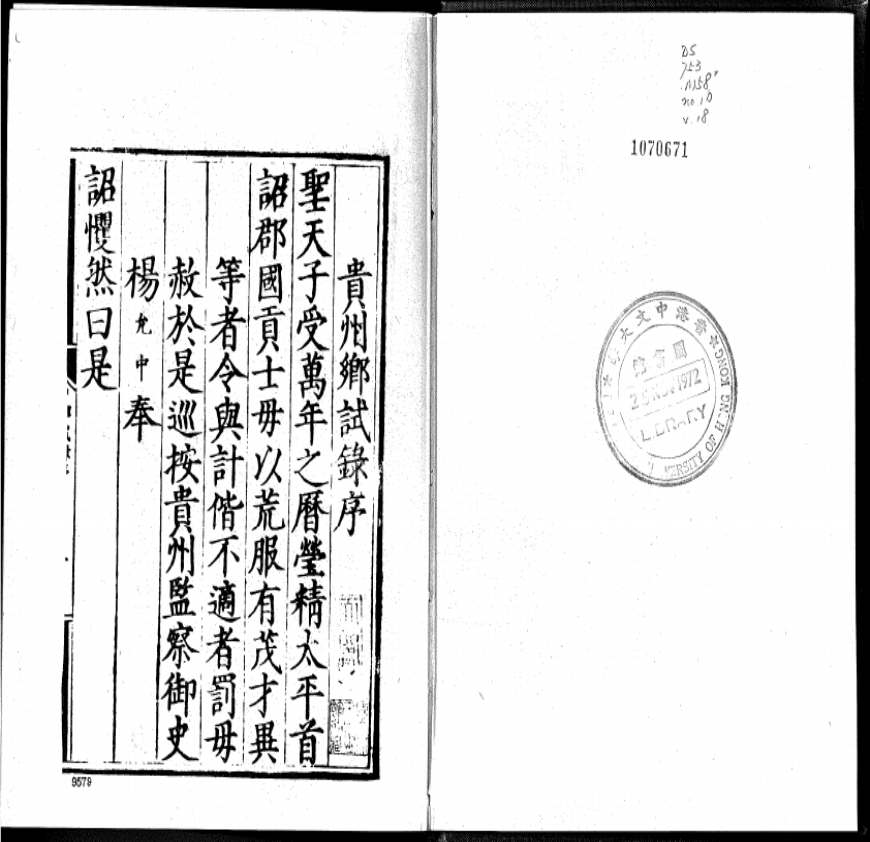 DS
753
no 10
v. 18
1070671
香港中文大
圖書館
1972
LIBRARY
ERSITY OF H NG KONG
貴州鄉試錄序
聖天子受萬年之曆瑩精太平首
詔郡國貢士毋以荒服有茂才異
等者令與計偕不適者罰毋
赦於是巡按貴州監察御史
楊允中奉
詔懼然曰是
9579